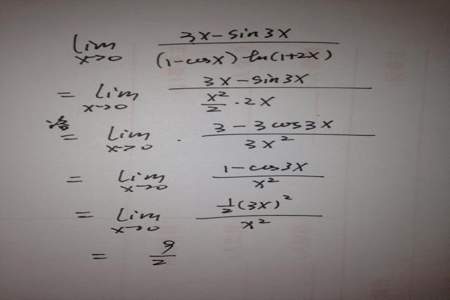 lim x→0 (3x-sin3x)/((1-cosx)·ln(1+2x))
= lim x→0 (3x-sin3x)/(x²/2·2x)
洛= lim x→0 · (3-3cos3x)/(3x²)
= lim x→0 (1-cos3x)/(x²)
= lim x→0 (1/2(3x)²)/(x²)
= 9/2